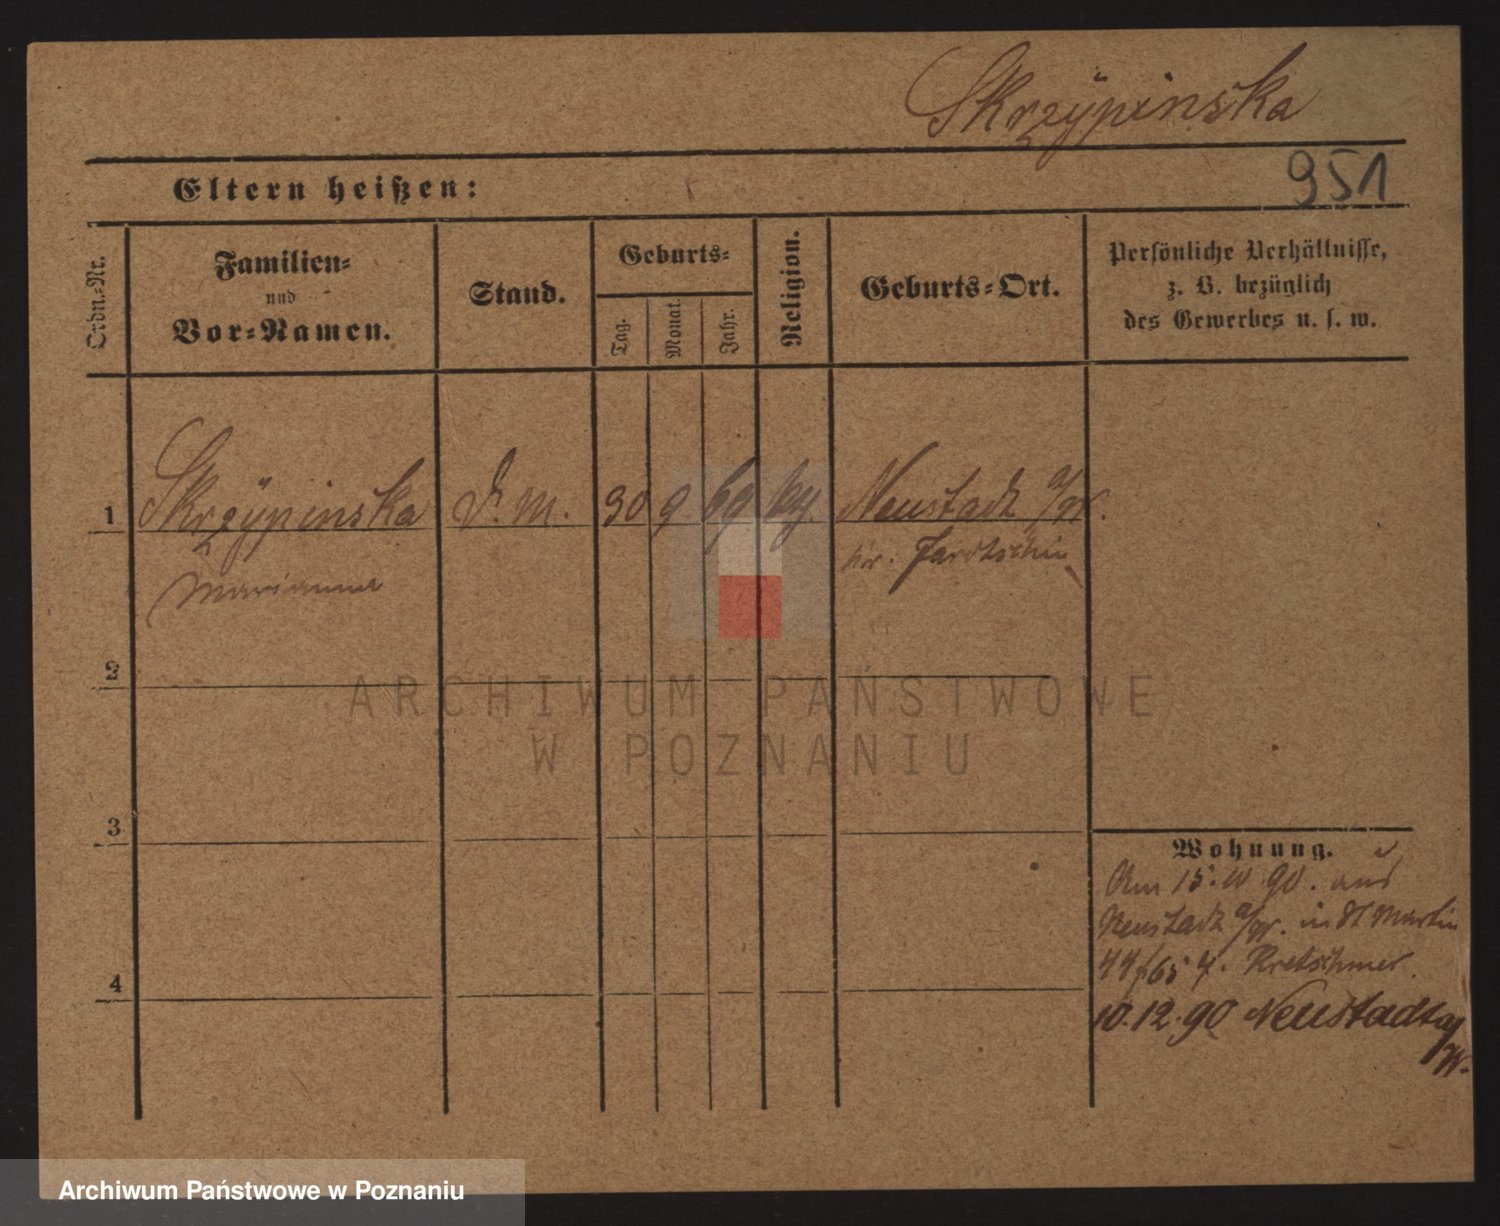 Skrzÿpinska
Eltern heißen:
951
Ordn.-Nr.
Familien-
und
Vor-Namen.
Stand.
Geburts-
Tag.
Monat.
Jahr.
Religion.
Geburts-Ort.
Persönliche Verhältnisse,
z. B. bezüglich
des Gewerbes u. s. w.
1 Skrzÿpinska D. M. 30 9 69 Neustadt a/W.
Marianna kr. Jarotschin
2
ARCHIWUM PAŃSTWOWE
W POZNANIU
3
Wohnung.
Am 15. 90. aus
Neustadt a/W. in St Martin
Kretschmer.
4
10.12.90 Neustadt a/
W.
Archiwum Państwowe w Poznaniu